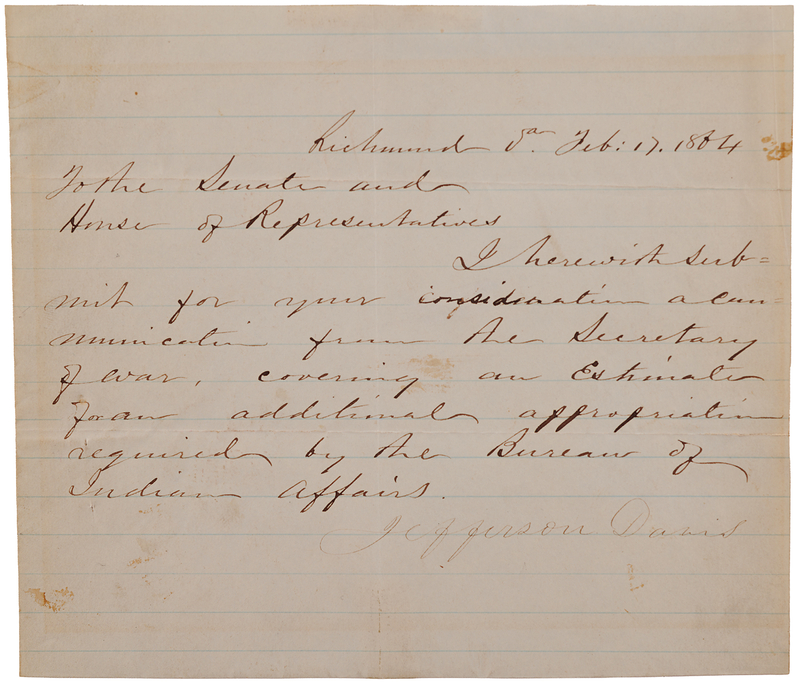 Richmond Va. Feb: 17. 1864
To the Senate and
House of Representatives
I herewith sub=
mit for your consideration a com=
munication from the Secretary
of War, covering an Estimate
for an additional appropriation
required by the Bureau of
Indian Affairs.
Jefferson Davis